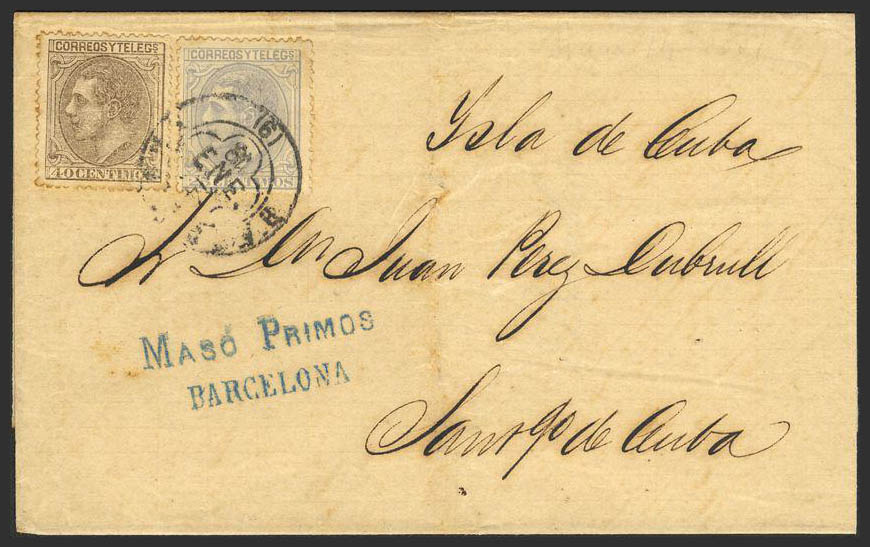 CORREOS Y TELEGS
40 CENTIMOS
CORREOS Y TELEGS
(6)
ENE
81
Isla de Cuba
Sr Dn Juan Perez Dubrull
MASÓ PRIMOS
BARCELONA
Santgo de Cuba